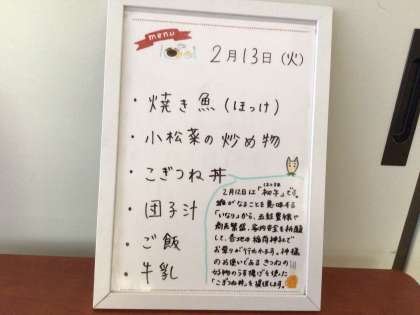 menu
2月13日(火)
・焼き魚(ほっけ)
・小松菜の炒め物
・こぎつね丼
・団子汁
・ご飯
・牛乳
はつうま
2月12日は「初午」です。
稲がなることを意味する
「いなり」から、五穀豊穣や
商売繁盛、家内安全を祈願
して、各地の稲荷神社で
お祭りが行われます。神様
のお使いであるきつねの
好物のうす揚げを使った
「こぎつね丼」を提供します。